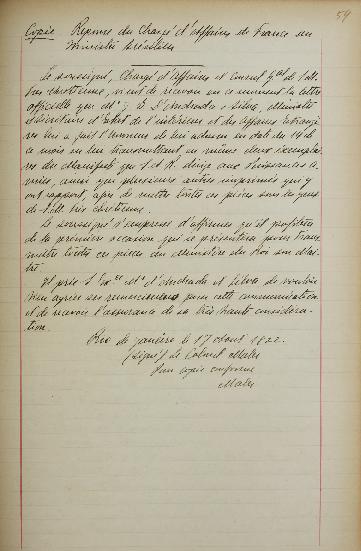 59
Copie Réponse du Chargé d'affaires de France au
Ministre brésilien
Le soussigné, Chargé d'affaires et Consul Gal de S. M.
très chrétienne, vient de recevoir en ce moment la lettre
officielle que M. J. B. d'Andrada e Silva, ministre
et secrétaire d'Etat de l'intérieur et des affaires étrangè-
res lui a fait l'honneur de lui adresser en date du 14 de
ce mois en lui transmettant en même temps exemplai-
res du Manifeste que S. A. R. dirige aux Puissances a-
mies, ainsi que plusieurs autres imprimés qui y
ont rapport, afin de mettre toutes ces pièces sous les yeux
de S. M. très chrétienne.
Le soussigné s'empresse d'affirmer qu'il profitera
de la première occasion qui se présentera pour trans-
mettre toutes ces pièces au ministère du Roi son maî-
tre.
Il prie S. Exce Mr d'Andrada et Silva de vouloir
bien agréer ses remerciements pour cette communication
et de recevoir l'assurance de sa très haute considéra-
tion.
Rio de Janeiro le 17 août 1822.
(signé) le Colonel Maler
Pour copie conforme
Maler